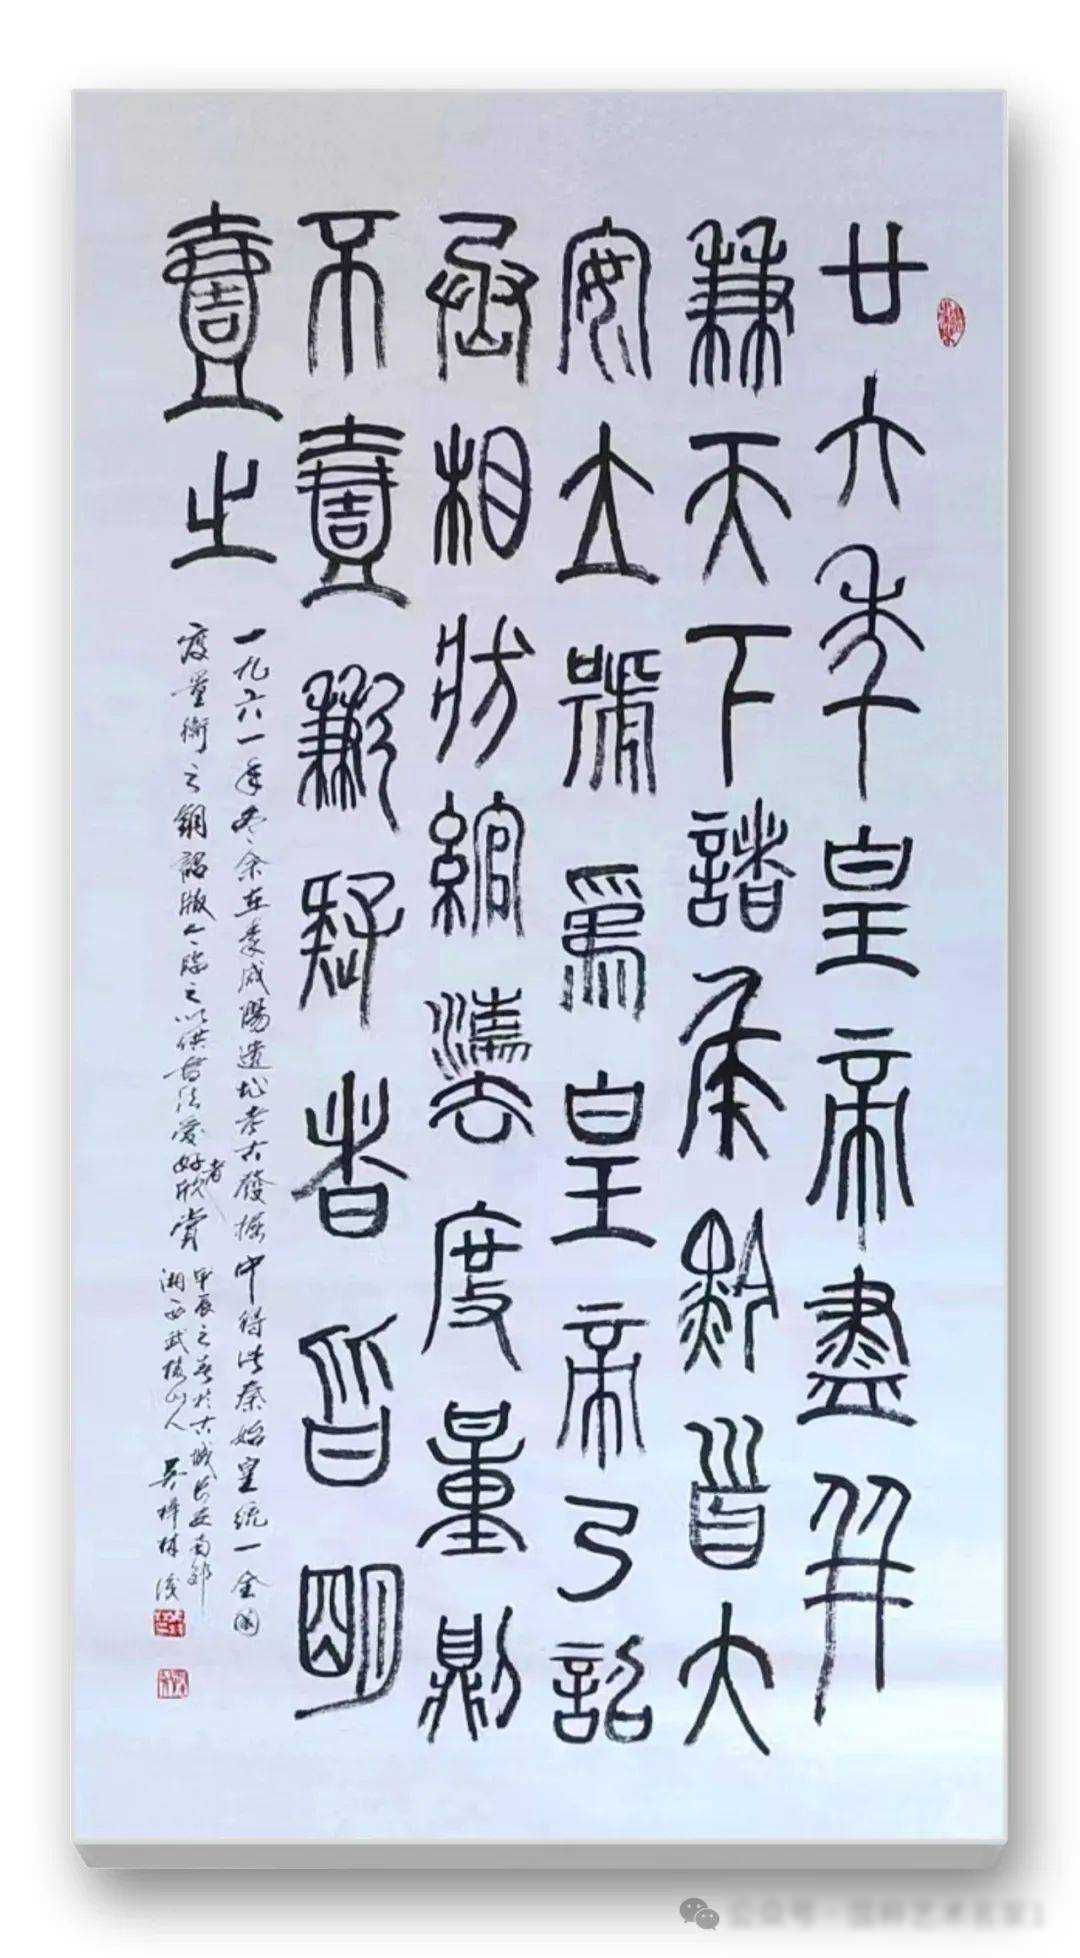 廿六年皇帝盡并
兼天下諸矦黔首大
安立號為皇帝乃詔
丞相狀綰灋度量則
不壹歉疑者皆明
壹之
一九六一年冬余在秦咸陽遺址考古發掘中得此秦始皇統一全國
度量衡之銅詔版今臨之以供書法愛好者欣賞
甲辰之春於古城長安南郊
湘西武陵山人吳梓林